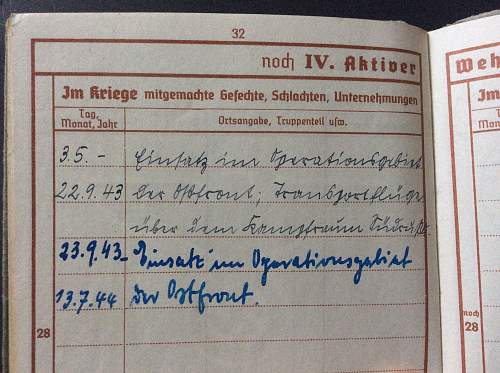 32
noch IV. Aktiver
Weh
Im Kriege mitgemachte Gefechte, Schlachten, Unternehmungen
Im
Tag, Monat, Jahr
Ortsangabe, Truppenteil usw.
Tag
Monat
3.5. - Einsatz im Operationsgebiet
22.9.43 der Ostfront; Transportflüge
über dem Kampfraum
23.9.43- Einsatz im Operationsgebiet
13.7.44 der Ostfront.
28
noch
28